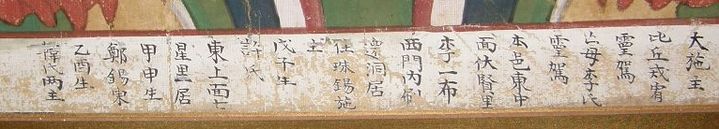 大施主
比丘戒
靈駕
亡母李氏
靈駕
本邑東中
面伏賢里
李一布
西門內布
洞居
任珠錫施
主
戊午生
許氏
東上面七
星里居
甲申生
鄭錫東
乙酉生
氏兩主